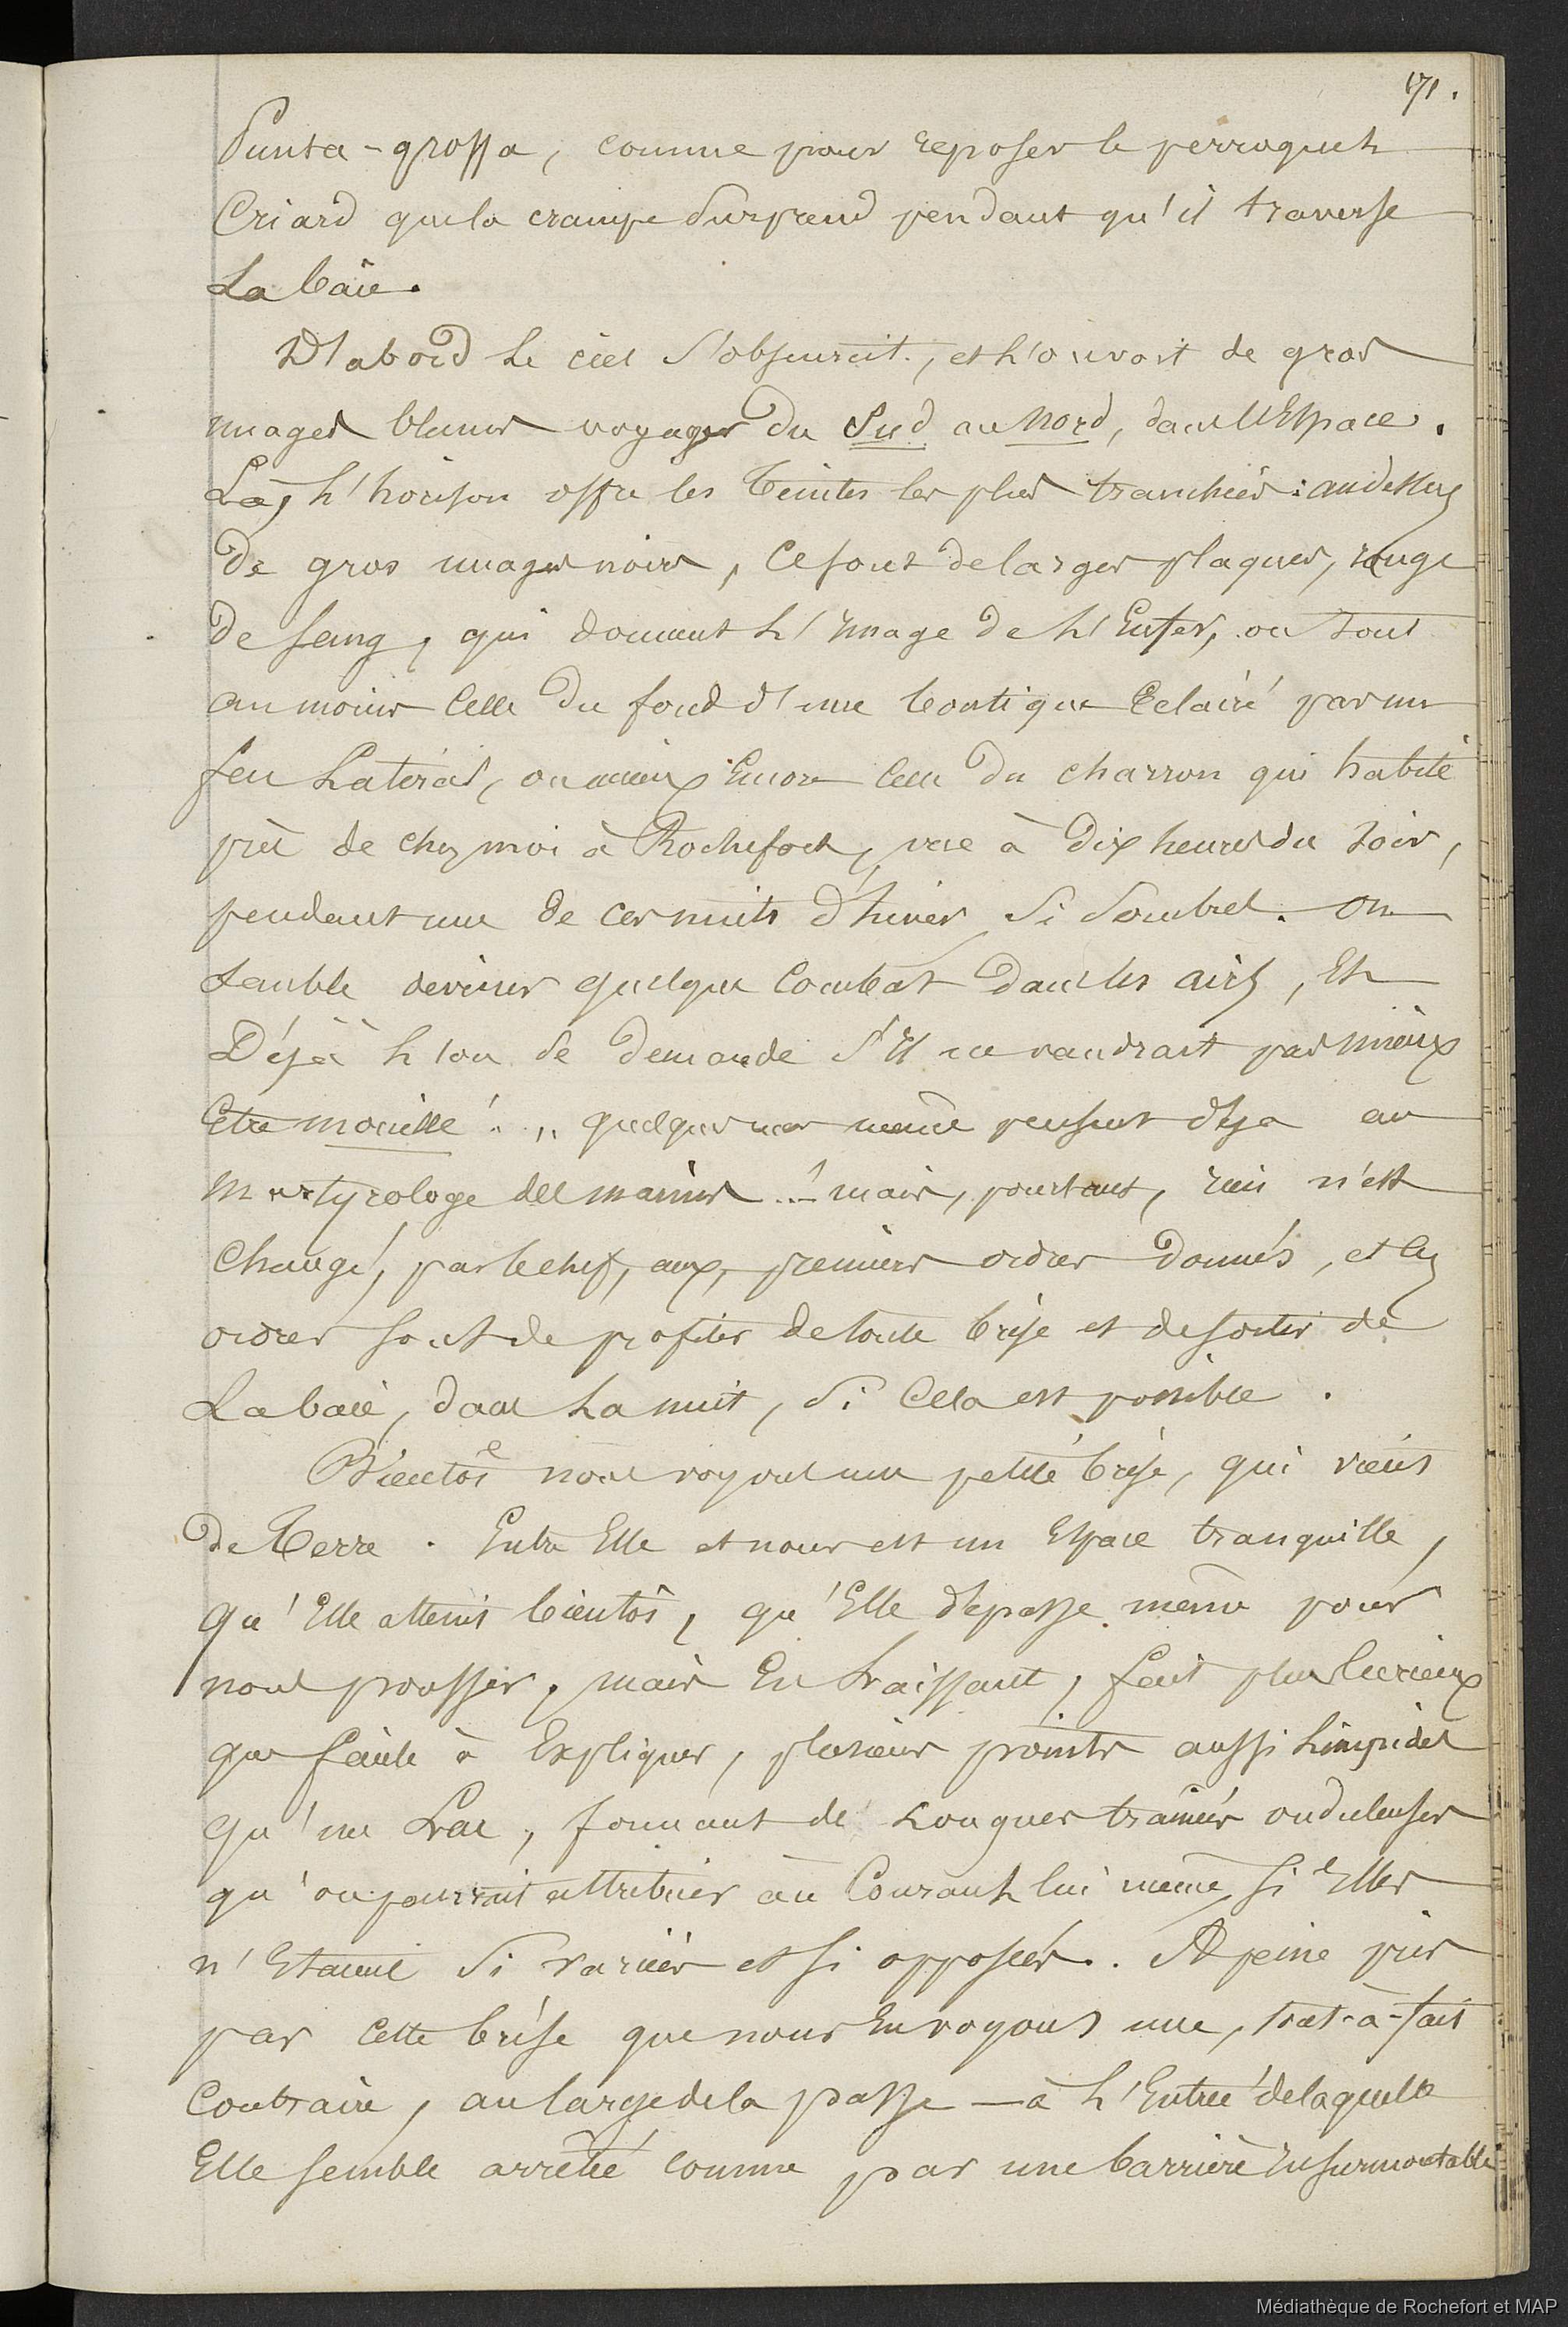 171.
Punta-grossa, comme pour reposer le perroquet
Criard que la crampe surprend pendant qu'il traverse
La baie.
D'abord le ciel s'obscurcit, et l'on voit de gros
nuages blancs voyager du Sud au Nord, dans l'Espace.
Là, l'horison offre les teintes les plus tranchées : au dessus
de gros nuages noirs, ce sont de larges plaques, rouge
de sang, qui donnent l'image de l'Enfer, ou tout
au moins celle du fond d'une boutique Eclairé par un
feu Latéral, ou mieux Encore celle du charron qui habite
près de chez moi à Rochefort, vue à dix heures du soir,
pendant une de ces nuits d'hiver si sombres. On
semble deviner quelque combat dans les airs, Et
Déjà l'on se demande s'il ne vaudrait pas mieux
Etre mouillé ! .. quelques uns même pensent déja au
martyrologe des marins ...! mais, pourtant, rien n'est
Changé, par le chef, aux premiers ordres donnés, et les
ordres sont de profiter de toute brise et de sortir de
La baie, dans La nuit, si Cela est possible.
Bientôt nous voyons une petite brise, qui vient
de Terre. Entre Elle et nous est un Espace tranquille,
qu'Elle atteint bientôt, qu'Elle dépasse même pour
nous pousser, mais En Laissant, fait plus curieux
que facile à Expliquer, plusieurs points aussi Limpides
qu'un Lac, formant de Longues trainées onduleuses
qu'on pourrait attribuer au Courant lui même, si Elles
n'Etaient si variées et si opposées. A peine pris
par cette brise que nous En voyons une, tout-à-fait
Contraire, au large de la passe — à l'Entrée de laquelle
Elle semble arrêtée comme par une barrière Insurmontable
Médiathèque de Rochefort et MAP